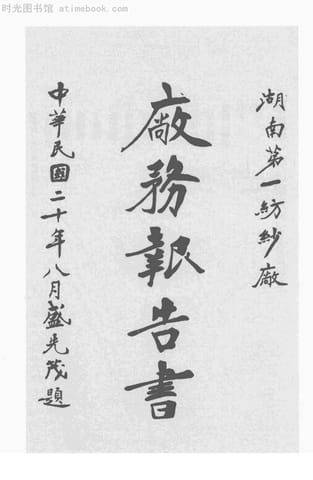 时光图书馆 · atimebook.com
湖南第一紡紗廠
廠務報告書
中華民國二十年八月盛先茂題